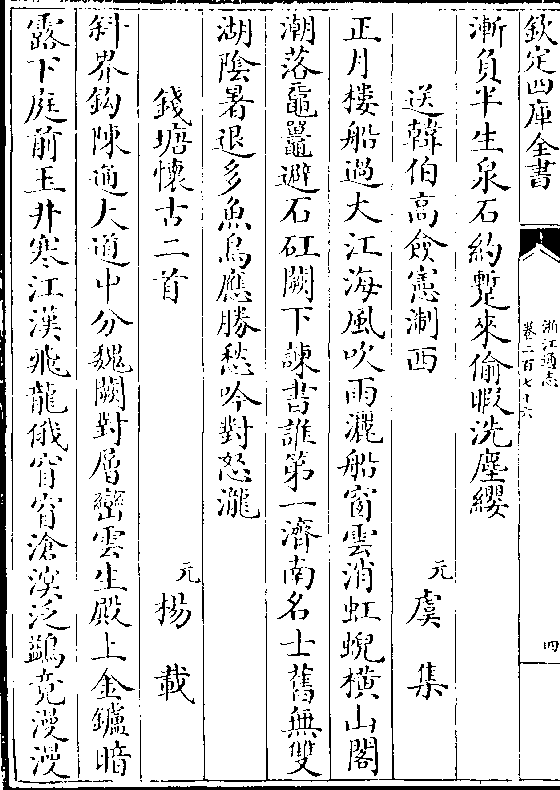 欽定四庫全書
浙江通志
卷二百七十六
四
漸負半生泉石約蹔來偷暇洗塵纓
送韓伯高僉憲浙西
元虞集
正月樓船過大江海風吹雨灑船窗雲消虹蜺橫山閣
潮落黿鼉避石矼闕下諫書誰第一濟南名士舊無雙
湖陰暑退多魚鳥應勝愁吟對怒瀧
錢塘懷古二首
元楊載
斜界鈎陳通大道中分魏闕對層巒雲生殿上金鑪暗
露下庭前玉井寒江漢飛龍俄窅窅滄溟泛鷁竟漫漫